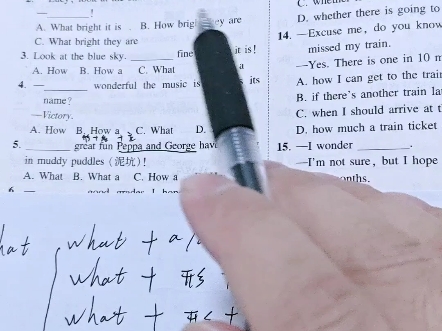 !
A. What bright it is B. How they are
C. What bright they are
3. Look at the blue sky. fine it is!
A. How B. How a C. What
4. — wonderful the music is its
name?
—Victory.
A. How B. How a C. What D.
5. great fun Peppa and George have
in muddy puddles (泥坑)!
A. What B. What a C. How a
6 —
D. whether there is going to
14. —Excuse me, do you know
missed my train.
—Yes. There is one in 10 m
A. how I can get to the trai
B. if there's another train la
C. when I should arrive at t
D. how much a train ticket
15. —I wonder .
—I'm not sure, but I hope
onths.
what + a/
what + 形
what + 形 +